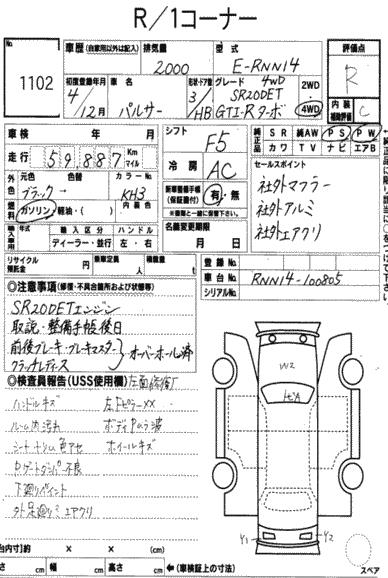 R/1コーナー
No. 1102
車歴(自家用以外は記入)
排気量 2000
型式 E-RNN14
評価点 R
初度登録年月 4/12月
車名 パルサー
形状・ドア数 3/HB
グレード 4WD
SR20DET
GTI-Rターボ
2WD
4WD
内装補助評価 C
車検 年 月
シフト F5
純正品 SR 純AW PS PW
カワ TV ナビ エアB
走行 59,887 Km マイル
冷房 AC
セールスポイント
社外マフラー
社外アルミ
社外エアクリ
外色 元色 色替 カラーNo.
ブラック→ KH3
燃料 ガソリン・軽油・( ) 内装色
新車整備手帳(保証書付) 有・無
(※書類と一緒に保管下さい。)
輸入車用 年式 輸入区分 ハンドル
ディーラー・並行 左・右
名義変更期限
月 日
リサイクル預託金 円 乗車定員 人 積載量 t
登録No.
車台No. RNN14-100805
シリアルNo.
◎注意事項(修復・不具合箇所および状態等)
SR20DETエンジン
取説・整備手帳後日
前後ブレーキ・ブレーキマスター
オーバーホール済
◎検査員報告(USS使用欄)
ハンドルキズ
左Fピラー××
ルーム内汚れ
ボディPムラ波
シートトリム色アセ
ホイールキズ
下廻りペイント
エアクリ
W2
Y1
Y2
(cm)
さ cm 幅 cm 高さ cm
←(車検証上の寸法)
スペア